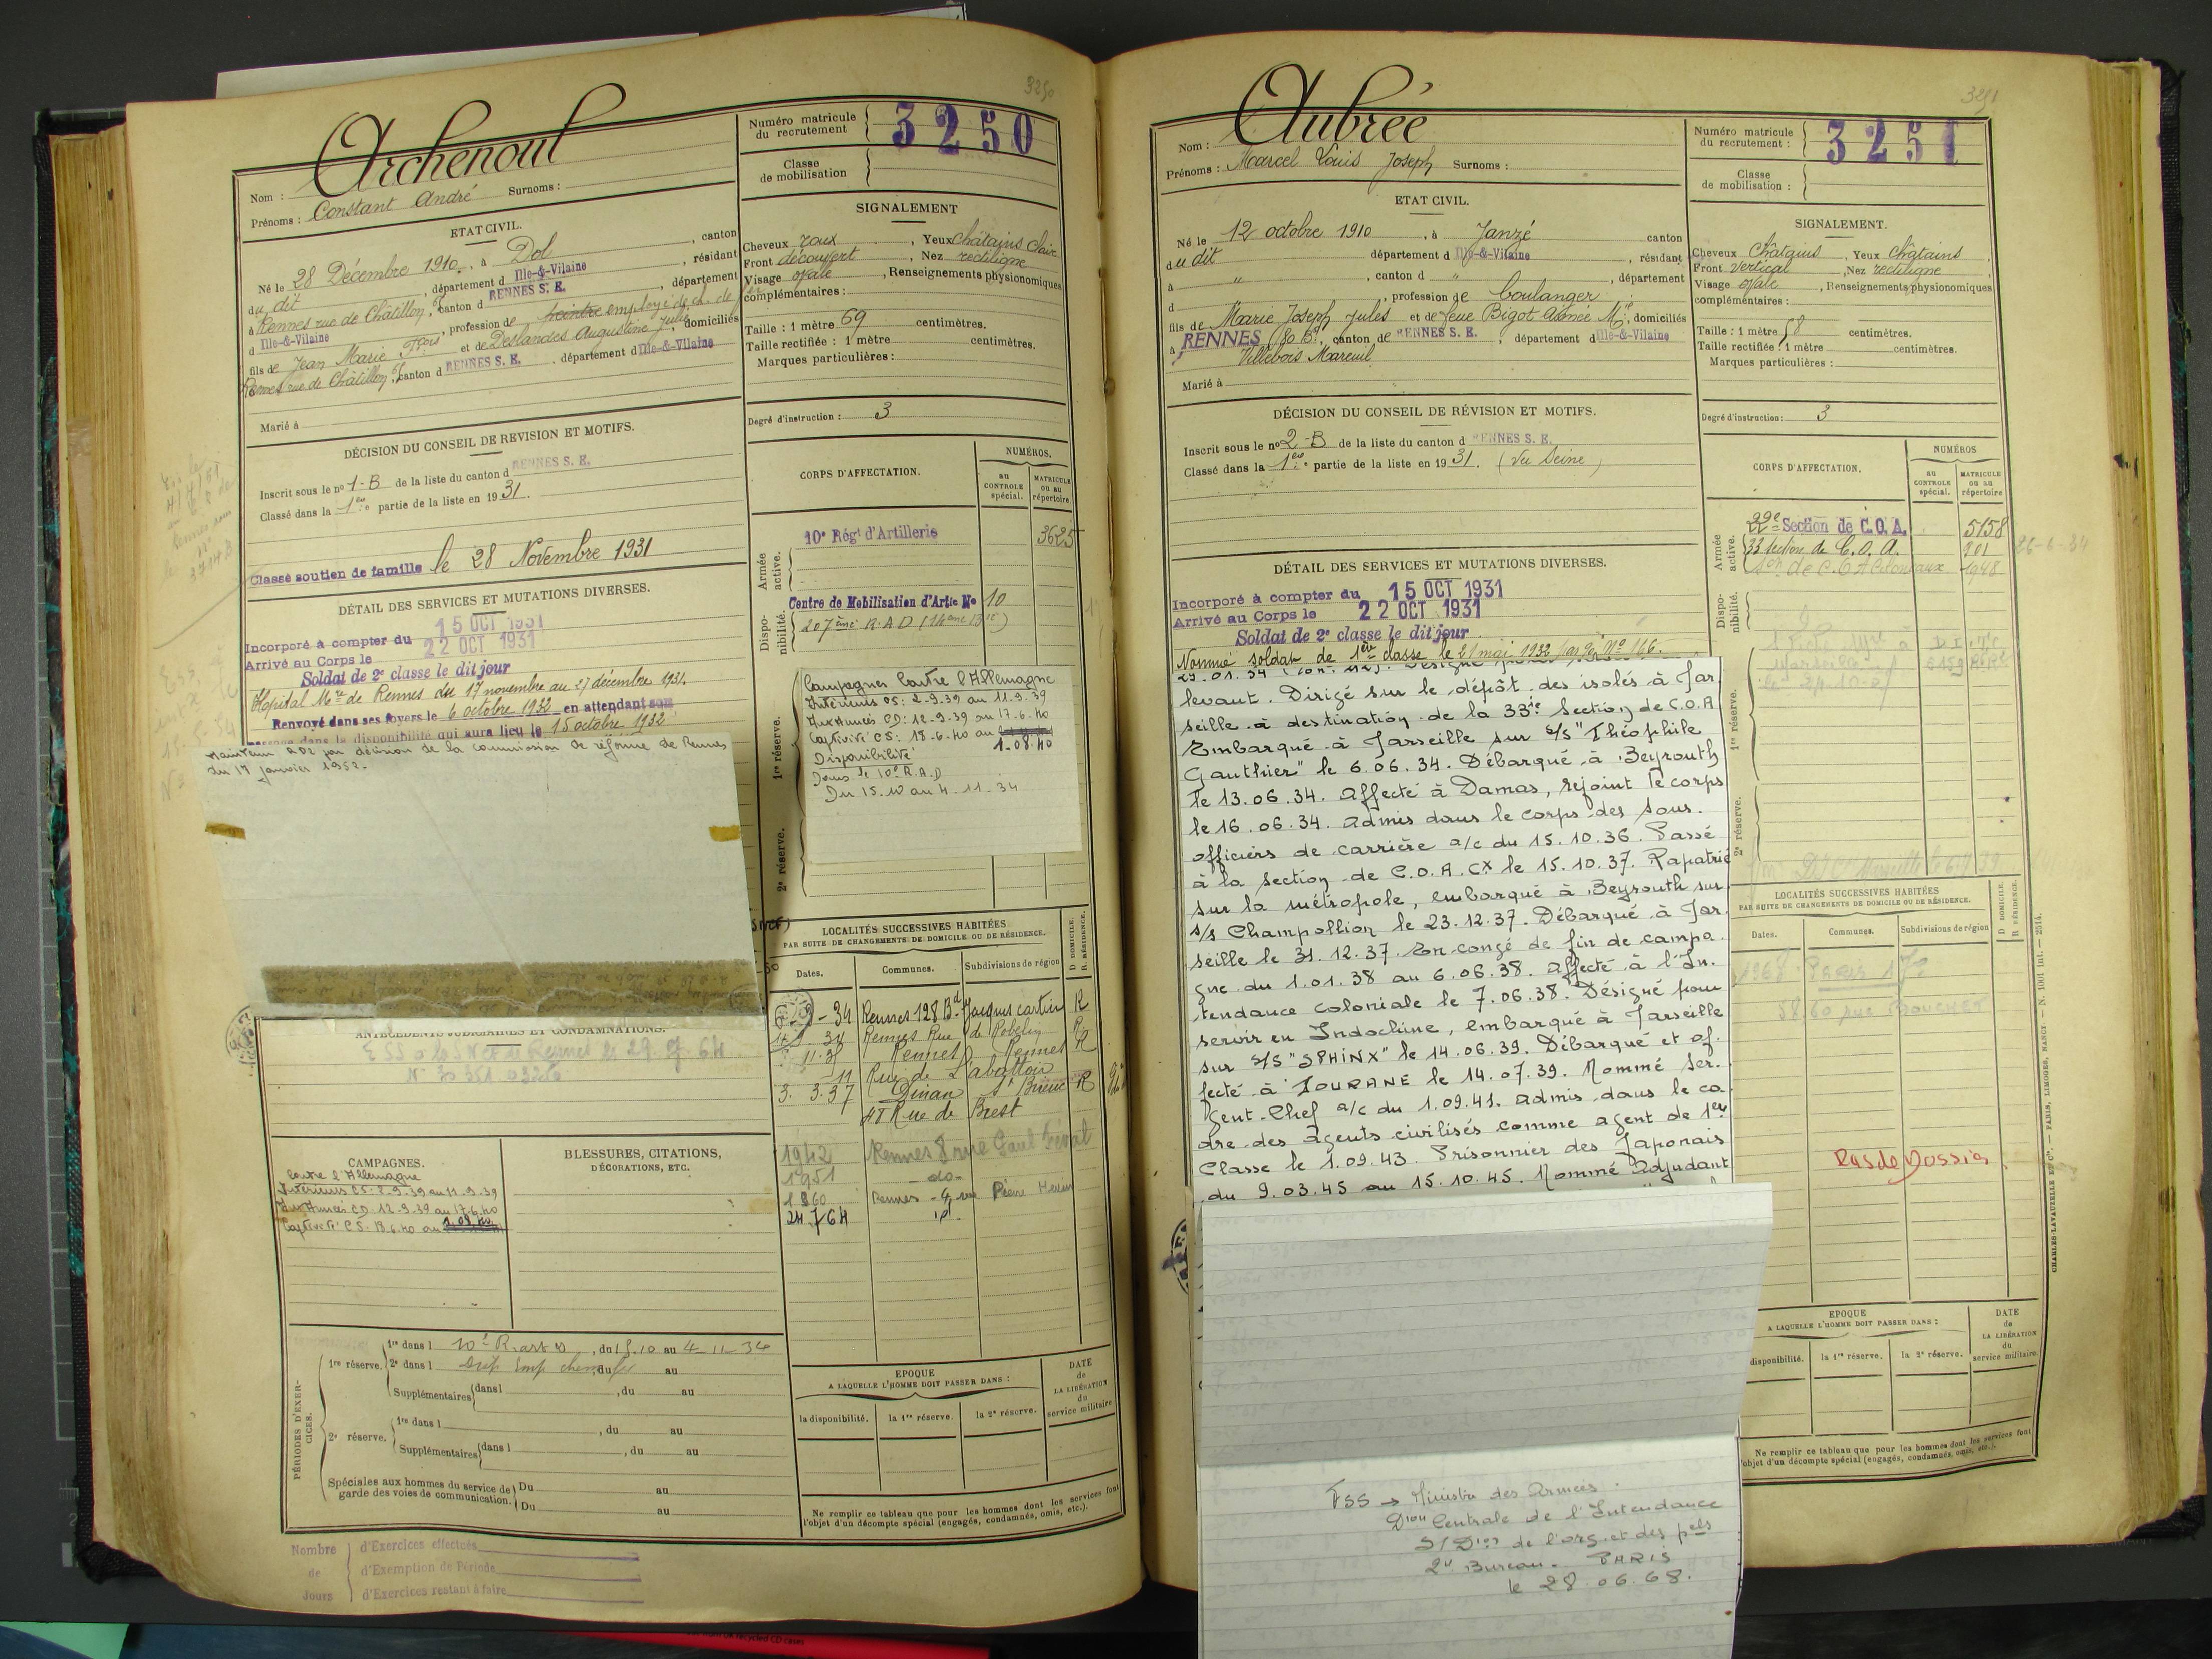 3250
Archenoul
Nom :
Prénoms : Constant André Surnoms :
Numéro matricule du recrutement 3250
Classe de mobilisation
ETAT CIVIL.
Né le 28 Décembre 1910, à Dol, canton
du dit, département d Ille-&-Vilaine, résidant
à Rennes rue de Châtillon, canton d RENNES S. E., département
d Ille-&-Vilaine, profession de peintre employé de ch. de fer
fils de Jean Marie Frois et de Deslandes Augustine Julie, domiciliés
Rennes rue de Châtillon, canton d RENNES S. E., département d Ille-&-Vilaine
Marié à
SIGNALEMENT
Cheveux roux, Yeux châtains clair
Front découvert, Nez rectiligne
Visage ovale, Renseignements physionomiques
complémentaires :
Taille : 1 mètre 69 centimètres.
Taille rectifiée : 1 mètre centimètres.
Marques particulières :
Degré d'instruction : 3
DÉCISION DU CONSEIL DE REVISION ET MOTIFS.
Inscrit sous le no 1-B de la liste du canton d RENNES S. E.
Classé dans la 1re partie de la liste en 1931.
Classé soutien de famille le 28 Novembre 1931
DÉTAIL DES SERVICES ET MUTATIONS DIVERSES.
Incorporé à compter du 15 OCT 1931
Arrivé au Corps le 22 OCT 1931
Soldat de 2e classe le dit jour
Hopital Mre de Rennes du 17 novembre au 27 décembre 1931.
Renvoyé dans ses foyers le 6 octobre 1932 en attendant son
passage dans la disponibilité qui aura lieu le 15 octobre 1932
Maintenu RD2 par décision de la commission de réforme de Rennes
du 17 janvier 1952.
CORPS D'AFFECTATION.
NUMÉROS.
au CONTROLE spécial.
MATRICULE ou au répertoire
Armée active.
10e Régt d'Artillerie 3625
Disponibilité.
Centre de Mobilisation d'Artie No 10
207ème R.A.D (14ème Bie)
1re réserve.
Campagnes Contre l'Allemagne
Intérieurs CS: 2-9-39 au 11-9-39
Aux Armées CD: 12-9-39 au 17.6.40
Captivité CS: 18-6-40 au
1.08.40
Disponibilité
Dans le 10e R.A.D
Du 15.10 au 4-11-34
2e réserve.
LOCALITÉS SUCCESSIVES HABITÉES
PAR SUITE DE CHANGEMENTS DE DOMICILE OU DE RÉSIDENCE.
Dates. Communes. Subdivisions de région D. DOMICILE. R. RÉSIDENCE.
9-34 Rennes 128 Bd Jacques Cartier R
34 Rennes Rue de Robelin R
11.35 Rennes Rennes R
11 Rue de L'abattoir
3. 3.37 Dinan St Brieuc R
41 Rue de Brest
1942 Rennes 8 rue Paul Féval
1951 do
1960 Rennes - 4 rue Pierre
24.7.64 id.
ANTÉCÉDENTS JUDICIAIRES ET CONDAMNATIONS.
CAMPAGNES.
Contre l'Allemagne
Intérieurs CS: 2-9-39 au 11-9-39
Aux Armées CD. 12-9-39 au 17.6.40
Captivité CS: 18.6.40 au 1.08.40
BLESSURES, CITATIONS,
DÉCORATIONS, ETC.
PÉRIODES D'EXERCICES.
1re réserve. 1re dans l 10e R.art D, du 15.10 au 4-11-34
2e dans l, du au
Supplémentaires dans l, du au
2e réserve. 1re dans l, du au
Supplémentaires dans l, du au
Spéciales aux hommes du service de garde des voies de communication. Du au
Du au
EPOQUE
A LAQUELLE L'HOMME DOIT PASSER DANS :
la disponibilité. la 1re réserve. la 2e réserve.
DATE de LA LIBÉRATION du service militaire
Ne remplir ce tableau que pour les hommes dont les services font
l'objet d'un décompte spécial (engagés, condamnés, omis, etc.).
Nombre de Jours
d'Exercices effectués
d'Exemption de Période
d'Exercices restant à faire
3251
Aubrée
Nom :
Prénoms : Marcel Louis Joseph Surnoms :
Numéro matricule du recrutement : 3251
Classe de mobilisation :
ETAT CIVIL.
Né le 12 octobre 1910, à Janzé canton
du dit département d Ille-&-Vilaine, résidant
à " , canton d " , département
d , profession de boulanger
fils de Marie Joseph Jules et de feue Bigot Aimée Mie, domiciliés
à RENNES 80 Bd, canton de RENNES S. E., département d Ille-&-Vilaine
Villebois Mareuil
Marié à
SIGNALEMENT.
Cheveux châtains, Yeux châtains
Front vertical, Nez rectiligne
Visage ovale, Renseignements physionomiques
complémentaires :
Taille : 1 mètre 58 centimètres.
Taille rectifiée : 1 mètre centimètres.
Marques particulières :
Degré d'instruction : 3
DÉCISION DU CONSEIL DE RÉVISION ET MOTIFS.
Inscrit sous le no 2-B de la liste du canton d RENNES S. E.
Classé dans la 1re partie de la liste en 1931. (Vu Seine)
DÉTAIL DES SERVICES ET MUTATIONS DIVERSES.
Incorporé à compter du 15 OCT 1931
Arrivé au Corps le 22 OCT 1931
Soldat de 2e classe le dit jour
Nommé soldat de 1ère classe le 21 mai 1932 No 166.
levant. Dirigé sur le dépôt des isolés à Mar
seille à destination de la 33e Section de C.O.A
Embarqué à Marseille sur S/S "Théophile
Gauthier" le 6.06.34. Débarqué à Beyrouth
le 13.06.34. Affecté à Damas, rejoint le corps
le 16.06.34. Admis dans le corps des sous.
officiers de carrière a/c du 15.10.36. Passé
à la section de C.O.A. Cx le 15.10.37. Rapatrié
sur la métropole, embarqué à Beyrouth sur
s/s Champollion le 23.12.37. Débarqué à Mar.
seille le 31.12.37. En congé de fin de campa.
gne du 1.01.38 au 6.06.38. Affecté à l'In.
tendance coloniale le 7.06.38. Désigné pour
servir en Indochine, embarqué à Marseille
sur S/S "SPHINX" le 14.06.39. Débarqué et af.
fecté à TOURANE le 14.07.39. Nommé Ser.
gent-Chef a/c du 1.09.41. Admis dans le ca
dre des agents civilisés comme agent de 1er
Classe le 1.09.43. Prisonnier des Japonais
du 9.03.45 au 15.10.45. Nommé Adjudant
CORPS D'AFFECTATION.
NUMÉROS
au CONTROLE spécial.
MATRICULE ou au répertoire
Armée active.
22e Section de C.O.A. 5158
33 section de C.O.A. 201 26-6-34
Son de C.O.A Coloniaux 1948
Disponibilité.
1re réserve.
2e réserve.
LOCALITÉS SUCCESSIVES HABITÉES
PAR SUITE DE CHANGEMENTS DE DOMICILE OU DE RÉSIDENCE.
Dates. Communes. Subdivisions de région D. DOMICILE. R. RÉSIDENCE.
1968 Paris 17e
Pas de Dossier
EPOQUE
A LAQUELLE L'HOMME DOIT PASSER DANS :
disponibilité. la 1re réserve. la 2e réserve.
DATE de LA LIBÉRATION du service militaire.
Ne remplir ce tableau que pour les hommes dont les services font
l'objet d'un décompte spécial (engagés, condamnés, omis, etc.).
CHARLES-LAVAUZELLE ET Cie. — PARIS, LIMOGES, NANCY. — N. 1001 Int. — 2514.
FSS → Ministre des Armées.
Dion Centrale de l'Intendance
S/Dion de l'org. et des pels
2e Bureau - PARIS
le 28.06.68.